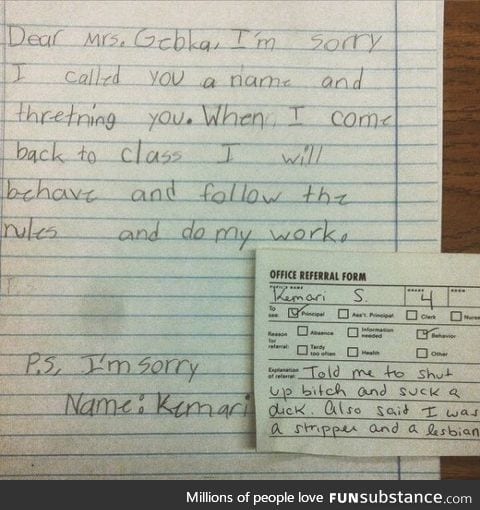 Dear Mrs. Gebka, I'm sorry
I called you a name and
thretning you. When I come
back to class I will
behave and follow the
rules and do my work.
P.S.
P.S, I'm sorry
Name: Kemari
OFFICE REFERRAL FORM
Kemari S. 4
To see: Principal Ass't. Principal Clerk Nurse
Reason for referral: Absence Information needed Behavior
Tardy too often Health Other
Explanation of referral: Told me to shut
up bitch and suck a
duck. Also said I was
a stripper and a lesbian
Millions of people love FUNsubstance.com